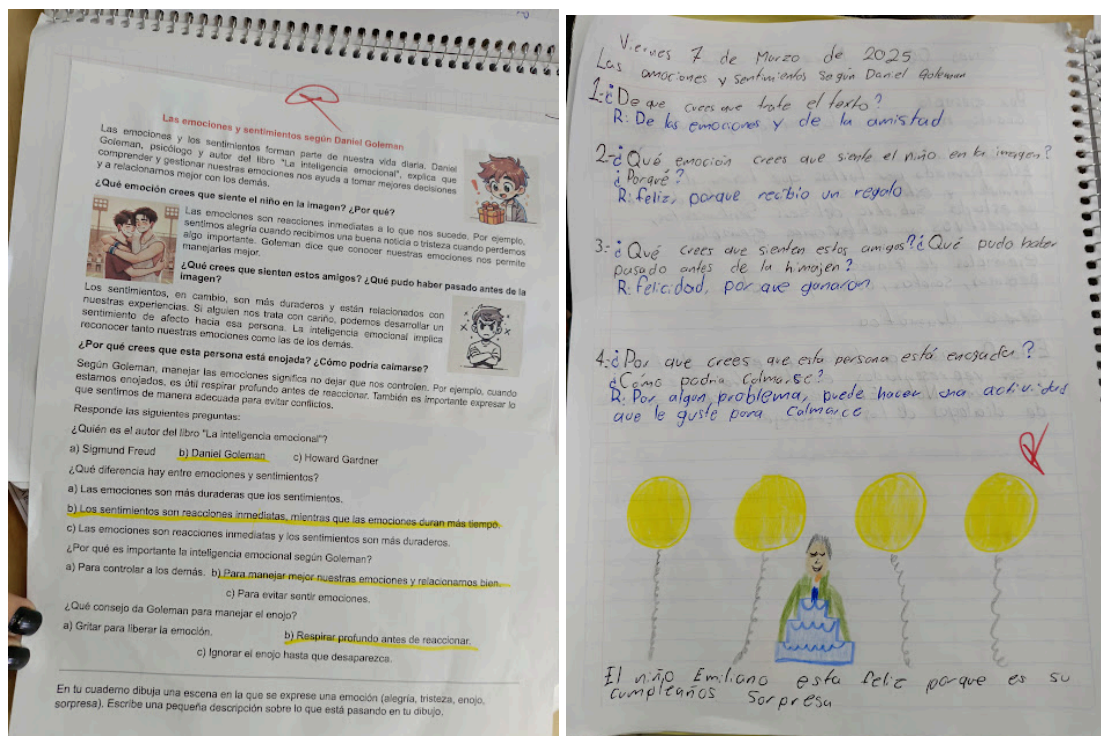 Las emociones y sentimientos según Daniel Goleman
Las emociones y los sentimientos forman parte de nuestra vida diaria. Daniel
Goleman, psicólogo y autor del libro "La inteligencia emocional", explica que
comprender y gestionar nuestras emociones nos ayuda a tomar mejores decisiones
y a relacionarnos mejor con los demás.
¿Qué emoción crees que siente el niño en la imagen? ¿Por qué?
Las emociones son reacciones inmediatas a lo que nos sucede. Por ejemplo,
sentimos alegría cuando recibimos una buena noticia o tristeza cuando perdemos
algo importante. Goleman dice que conocer nuestras emociones nos permite
manejarlas mejor.
¿Qué crees que sienten estos amigos? ¿Qué pudo haber pasado antes de la
imagen?
Los sentimientos, en cambio, son más duraderos y están relacionados con
nuestras experiencias. Si alguien nos trata con cariño, podemos desarrollar un
sentimiento de afecto hacia esa persona. La inteligencia emocional implica
reconocer tanto nuestras emociones como las de los demás.
¿Por qué crees que esta persona está enojada? ¿Cómo podría calmarse?
Según Goleman, manejar las emociones significa no dejar que nos controlen. Por ejemplo, cuando
estamos enojados, es útil respirar profundo antes de reaccionar. También es importante expresar lo
que sentimos de manera adecuada para evitar conflictos.
Responde las siguientes preguntas:
¿Quién es el autor del libro "La inteligencia emocional"?
a) Sigmund Freud b) Daniel Goleman c) Howard Gardner
¿Qué diferencia hay entre emociones y sentimientos?
a) Las emociones son más duraderas que los sentimientos.
b) Los sentimientos son reacciones inmediatas, mientras que las emociones duran más tiempo.
c) Las emociones son reacciones inmediatas y los sentimientos son más duraderos.
¿Por qué es importante la inteligencia emocional según Goleman?
a) Para controlar a los demás. b) Para manejar mejor nuestras emociones y relacionarnos bien.
c) Para evitar sentir emociones.
¿Qué consejo da Goleman para manejar el enojo?
a) Gritar para liberar la emoción. b) Respirar profundo antes de reaccionar.
c) Ignorar el enojo hasta que desaparezca.
En tu cuaderno dibuja una escena en la que se exprese una emoción (alegría, tristeza, enojo,
sorpresa). Escribe una pequeña descripción sobre lo que está pasando en tu dibujo.
Viernes 7 de Marzo de 2025
Las emociones y sentimientos según Daniel Goleman
1-¿De que crees que trate el texto?
R: De las emociones y de la amistad
2-¿Qué emoción crees que siente el niño en la imagen?
¿Porqué?
R: feliz, porque recibio un regalo
3-¿Qué crees que sienten estos amigos? ¿Qué pudo haber
pasado antes de la himajen?
R: felicidad, por que ganaron
4-¿Por que crees que esta persona está
¿Cómo podria calmarse?
R: Por algun problema, puede hacer una actividad
que le guste para calmarce
El niño Emiliano esta feliz porque es su
cumpleaños sorpresa